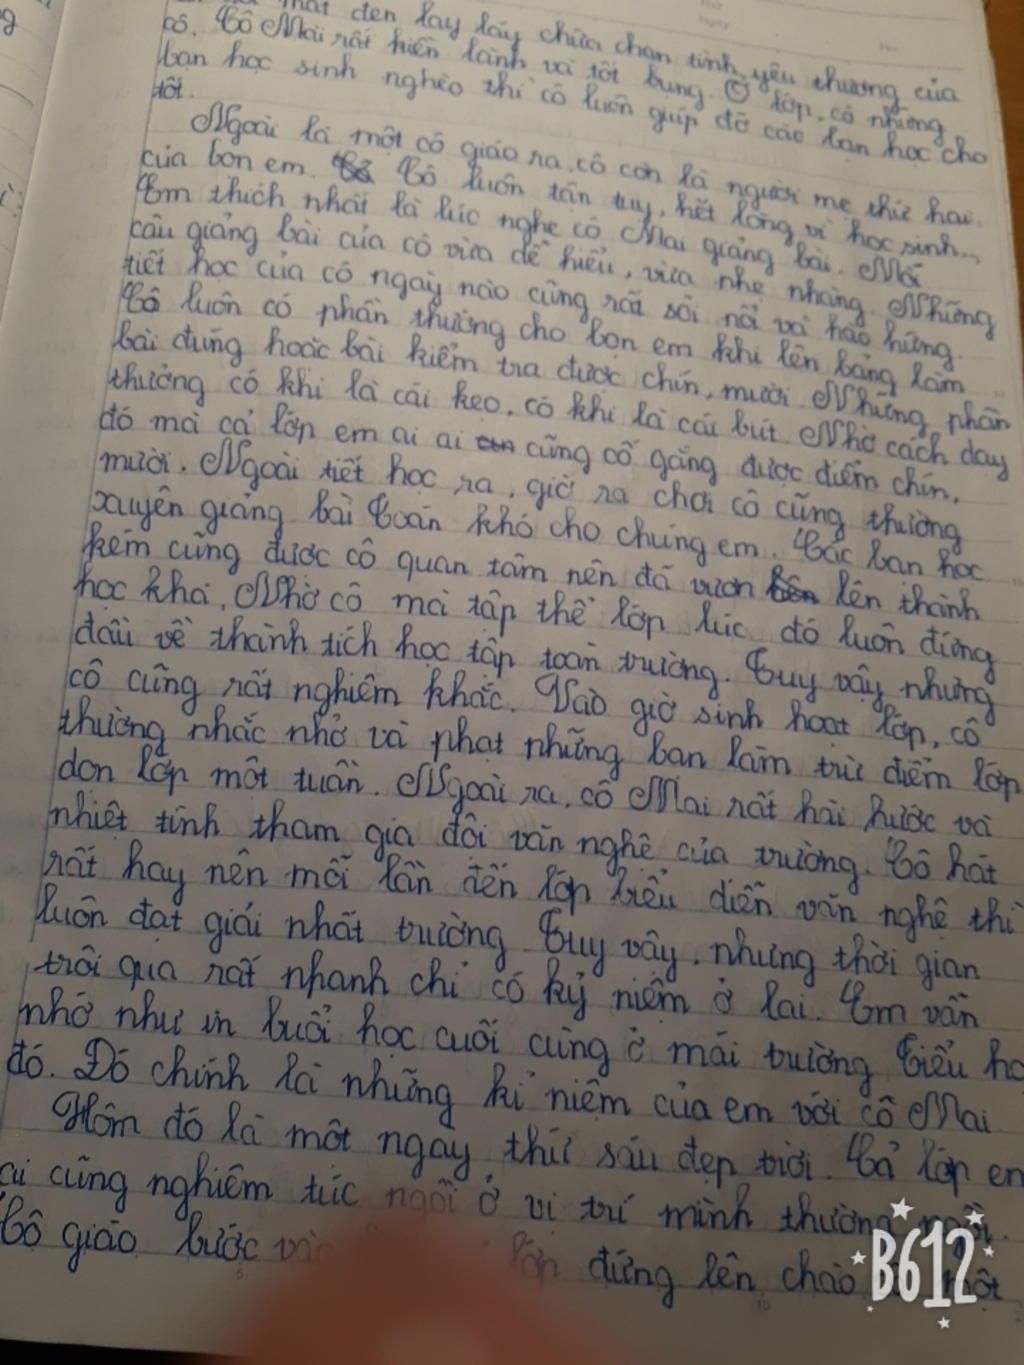 mắt đen lay láy chứa chan tình yêu thương của
cô. Cô Mai rất hiền lành và tốt bụng. Ở lớp, có những
bạn học sinh nghèo thì cô luôn giúp đỡ các bạn học cho
tốt.
Ngoài là một cô giáo ra, cô còn là người mẹ thứ hai
của bọn em. Cô luôn tận tuỵ, hết lòng vì học sinh...
Em thích nhất là lúc nghe cô Mai giảng bài. Mỗi
câu giảng bài của cô vừa dễ hiểu, vừa nhẹ nhàng. Những
tiết học của cô ngày nào cũng rất sôi nổi và hào hứng.
Cô luôn có phần thưởng cho bọn em khi lên bảng làm
bài đúng hoặc bài kiểm tra được chín, mười. Những phần
thưởng có khi là cái kẹo, có khi là cái bút. Nhờ cách dạy
đó mà cả lớp em ai ai cũng cố gắng được điểm chín,
mười. Ngoài tiết học ra, giờ ra chơi cô cũng thường
xuyên giảng bài Toán khó cho chúng em. Các bạn học
kém cũng được cô quan tâm nên đã vươn lên thành
học khá. Nhờ cô mà tập thể lớp lúc đó luôn đứng
đầu về thành tích học tập toàn trường. Tuy vậy nhưng
cô cũng rất nghiêm khắc. Vào giờ sinh hoạt lớp, cô
thường nhắc nhở và phạt những bạn làm trừ điểm lớp
dọn lớp một tuần. Ngoài ra, cô Mai rất hài hước và
nhiệt tình tham gia đội văn nghệ của trường. Cô hát
rất hay nên mỗi lần đến lớp biểu diễn văn nghệ thì
luôn đạt giải nhất trường. Tuy vậy, nhưng thời gian
trôi qua rất nhanh chỉ có kỷ niệm ở lại. Em vẫn
nhớ như in buổi học cuối cùng ở mái trường Tiểu họ
đó. Đó chính là những kỉ niệm của em với cô Mai
Hôm đó là một ngày thứ sáu đẹp trời. Cả lớp em
ai cũng nghiêm túc ngồi ở vị trí mình thường ngồi.
Cô giáo bước vào lớp đứng lên chào một
B612